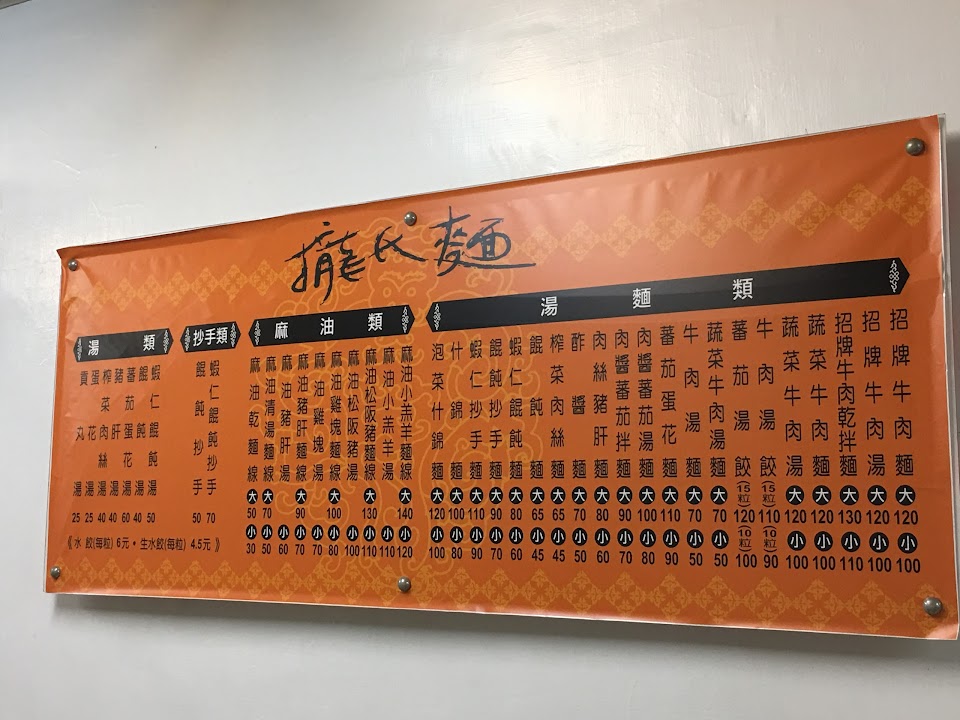 攏氏麵
湯麵類
招牌牛肉麵 大 120 小 100
招牌牛肉湯 大 120 小 100
招牌牛肉乾拌麵 大 130 小 110
蔬菜牛肉麵 大 120 小 100
蔬菜牛肉湯 大 120 小 100
牛肉湯餃 (15粒) 110 (10粒) 90
蕃茄湯餃 (15粒) 120 (10粒) 100
蔬菜牛肉湯麵 大 70 小 50
牛肉湯麵 大 70 小 50
蕃茄蛋花麵 大 110 小 90
肉醬蕃茄湯麵 大 100 小 80
肉醬蕃茄拌麵 大 90 小 70
肉絲豬肝麵 大 80 小 60
酢醬麵 大 70 小 50
榨菜肉絲麵 大 65 小 45
餛飩麵 大 65 小 45
蝦仁餛飩麵 大 80 小 60
餛飩抄手麵 大 90 小 70
蝦仁抄手麵 大 110 小 90
什錦麵 大 100 小 80
泡菜什錦麵 大 120 小 100
麻油類
麻油小羔羊麵線 大 140 小 120
麻油小羔羊湯 小 110
麻油松阪豬麵線 大 130 小 110
麻油松阪豬湯 小 100
麻油雞塊麵線 大 100 小 80
麻油雞塊湯 小 70
麻油豬肝麵線 大 90 小 70
麻油豬肝湯 小 60
麻油清湯麵線 大 70 小 50
麻油乾麵線 大 50 小 30
抄手類
蝦仁餛飩抄手 70
餛飩抄手 50
湯類
蝦仁餛飩湯 50
餛飩湯 40
蕃茄蛋花湯 60
豬肝湯 40
榨菜肉絲湯 40
蛋花湯 25
貢丸湯 25
《水餃(每粒) 6元・生水餃(每粒) 4.5元》